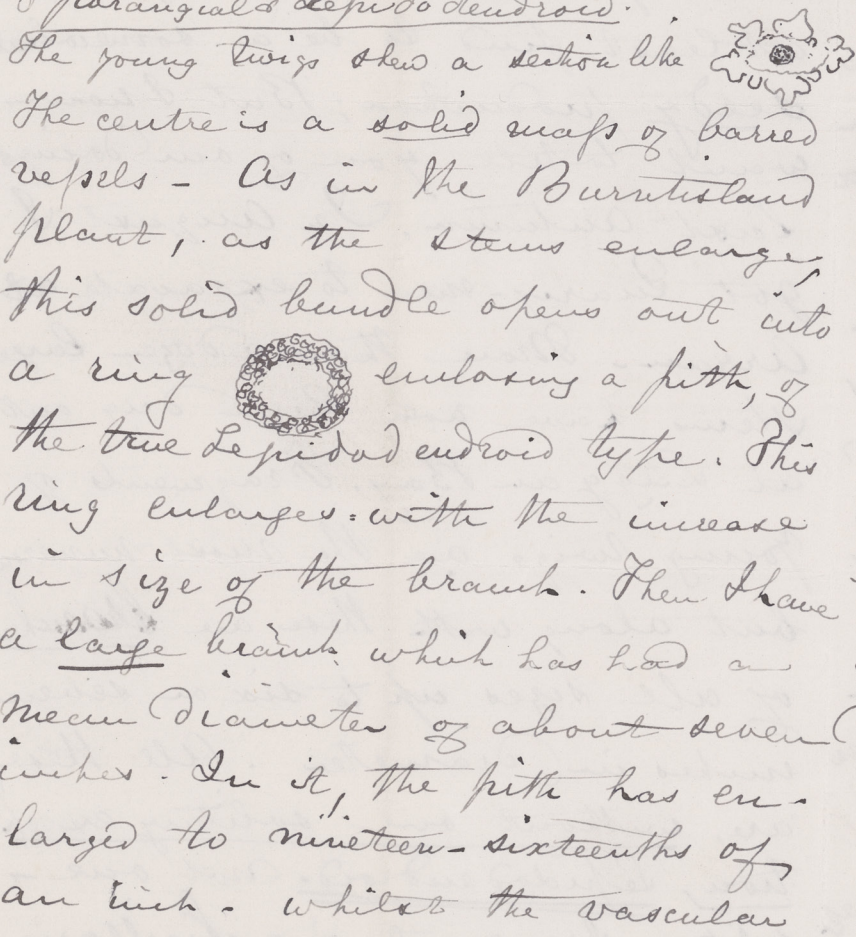 Lepidodendroid.
The young twigs shew a section like
The centre is a solid mass of barred
vessels – As in the Burntisland
plant, as the stems enlarge,
this solid bundle opens out into
a ring enclosing a pith, of
the true Lepidodendroid type. This
ring enlarges with the increase
in size of the branch. Then I have
a large branch which has had a
mean diameter of about seven
inches. In it, the pith has en-
larged to nineteen-sixteenths of
an inch - whilst the vascular